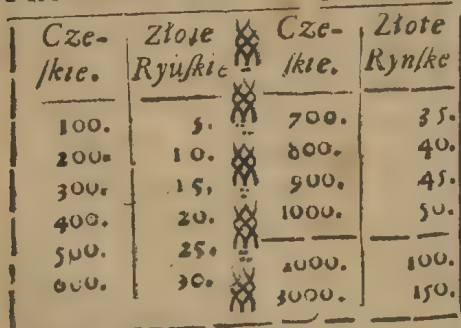 Cze- Złote Cze- Złote
ſkie. Ryńſkie ſkie. Rynſke
100. 5. 700. 35.
200. 10. 800. 40.
300. 15. 900. 45.
400. 20. 1000. 50.
500. 25. 2000. 100.
600. 30. 3000. 150.